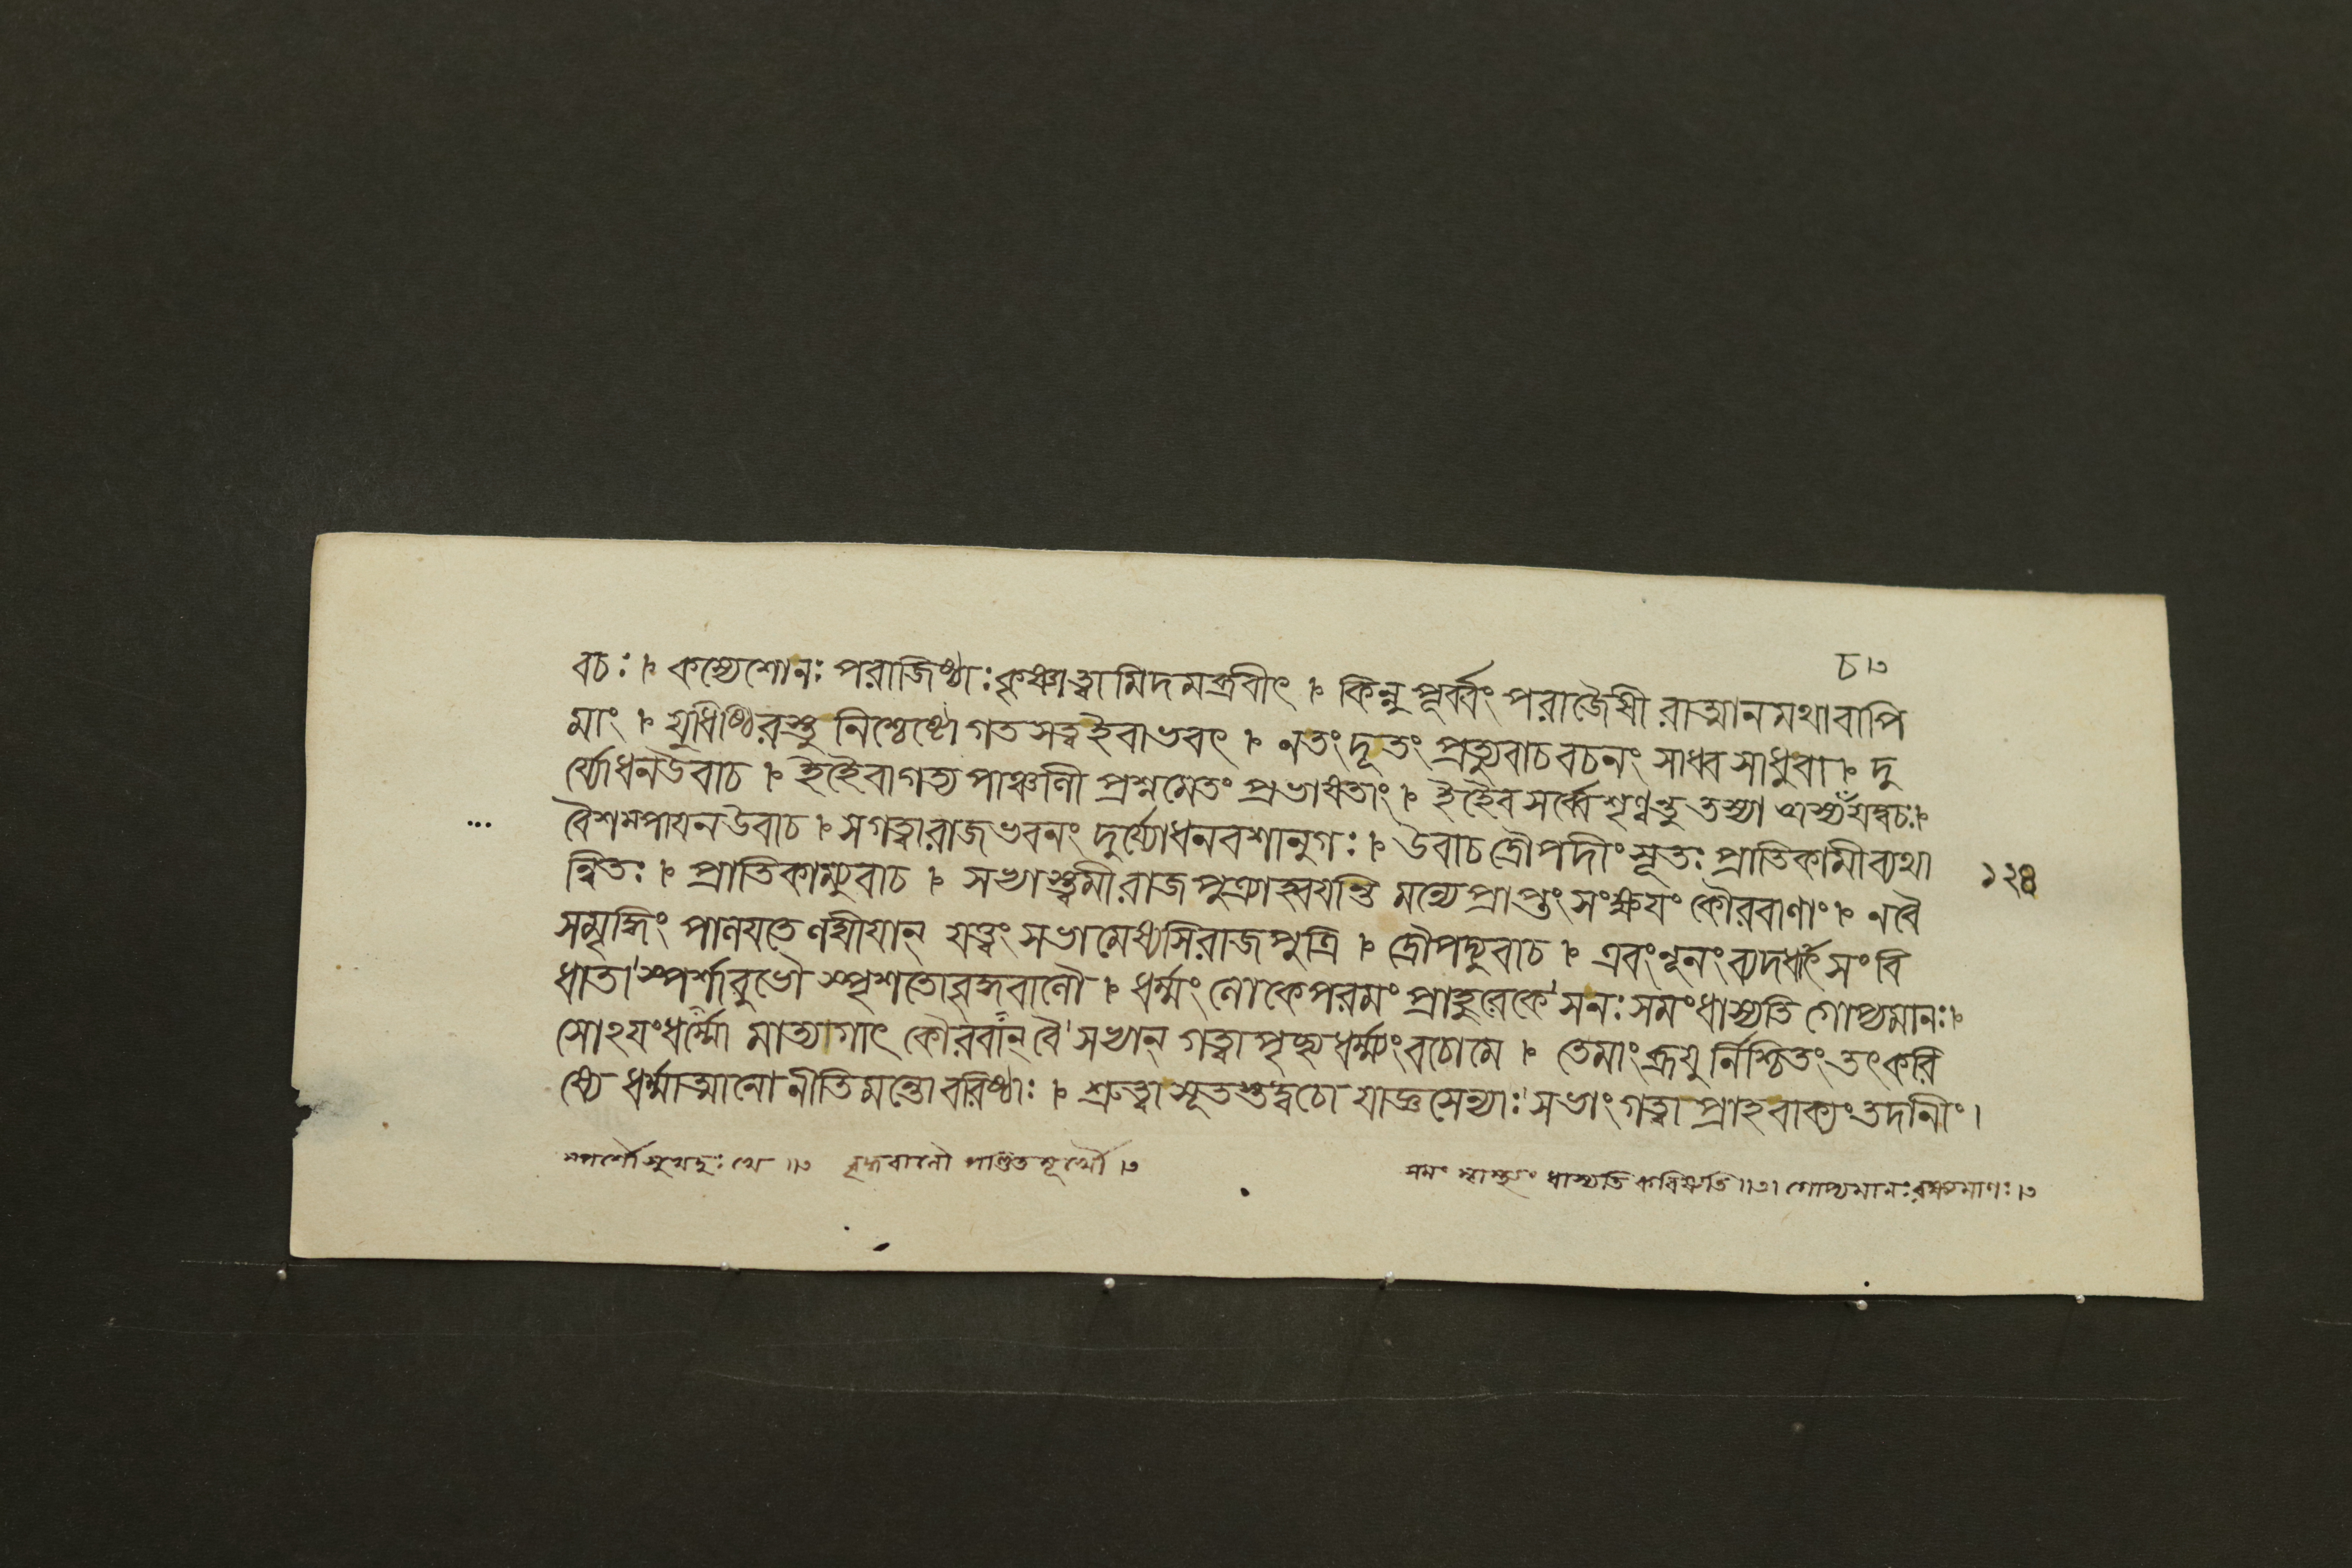 চ।৩
বচঃ ৷ কস্যেশোনঃ পরাজিষ্ঠাঃ কৃষ্ণাত্বামিদমব্রবীৎ ৷ কিন্নু পূর্ব্বং পরাজৈষী রাত্মানমথাবাপি
মাং ৷ যুধিষ্ঠিরস্তু নিশ্চেষ্টো গতসত্ত্বইবাভবৎ ৷ নতং দূতং প্রত্যুবাচ বচনং সাধ্বসাধুবা ৷ দু
র্য্যোধনউবাচ ৷ ইহৈবাগত্য পাঞ্চালী প্রশ্নমেতং প্রভাষতাং ৷ ইহৈব সর্ব্বে শৃণ্বন্তু তস্যা শ্চাস্য যদ্বচঃ ৷
বৈশম্পায়নউবাচ ৷ সগত্বারাজভবনং দুর্য্যোধনবশানুগঃ ৷ উবাচ দ্রৌপদীং সূতঃ প্রাতিকামী ব্যথা
ন্বিতঃ ৷ প্রাতিকাম্যুবাচ ৷ সভ্যাস্ত্বমী রাজপুত্র্যাহ্বয়ন্তি মন্যে প্রাপ্তং সংক্ষয়ং কৌরবাণাং ৷ নবৈ
১২৪
সমৃদ্ধিং পালয়তে লঘীয়ান্ যত্ত্বং সভামেষ্যসি রাজপুত্রি ৷ দ্রৌপদ্যুবাচ ৷ এবংনূনং ব্যদধাৎ সংবি
ধাতা স্পর্শাবুভৌ স্পৃশতো বৃদ্ধবালৌ ৷ ধর্ম্মং লোকেপরমং প্রাহুরেকে সনঃ সমংধাস্যতি গোপ্যমানঃ ৷
সোঽয়ংধর্ম্মো মাত্যাগাৎ কৌরবান্ বৈ সভ্যান্ গত্বা পৃচ্ছ ধর্ম্ম্যংবচোমে ৷ তেমাংব্রূয়ু র্নিশ্চিতং তৎকরি
ষ্যে ধর্ম্মাত্মানো নীতিমন্তো বরিষ্ঠাঃ ৷ শ্রুত্বা সূতস্তদ্বচো যাজ্ঞসেন্যাঃ সভাং গত্বা প্রাহ বাক্যং তদানীং।
স্পর্শৌ সুখদুঃখে ॥৩ বৃদ্ধবালৌ পণ্ডিতমূর্খৌ।৩
সমং ধাস্যতি করিষ্যতি॥৩। গোপ্যমানঃ রক্ষ্যমাণঃ।৩